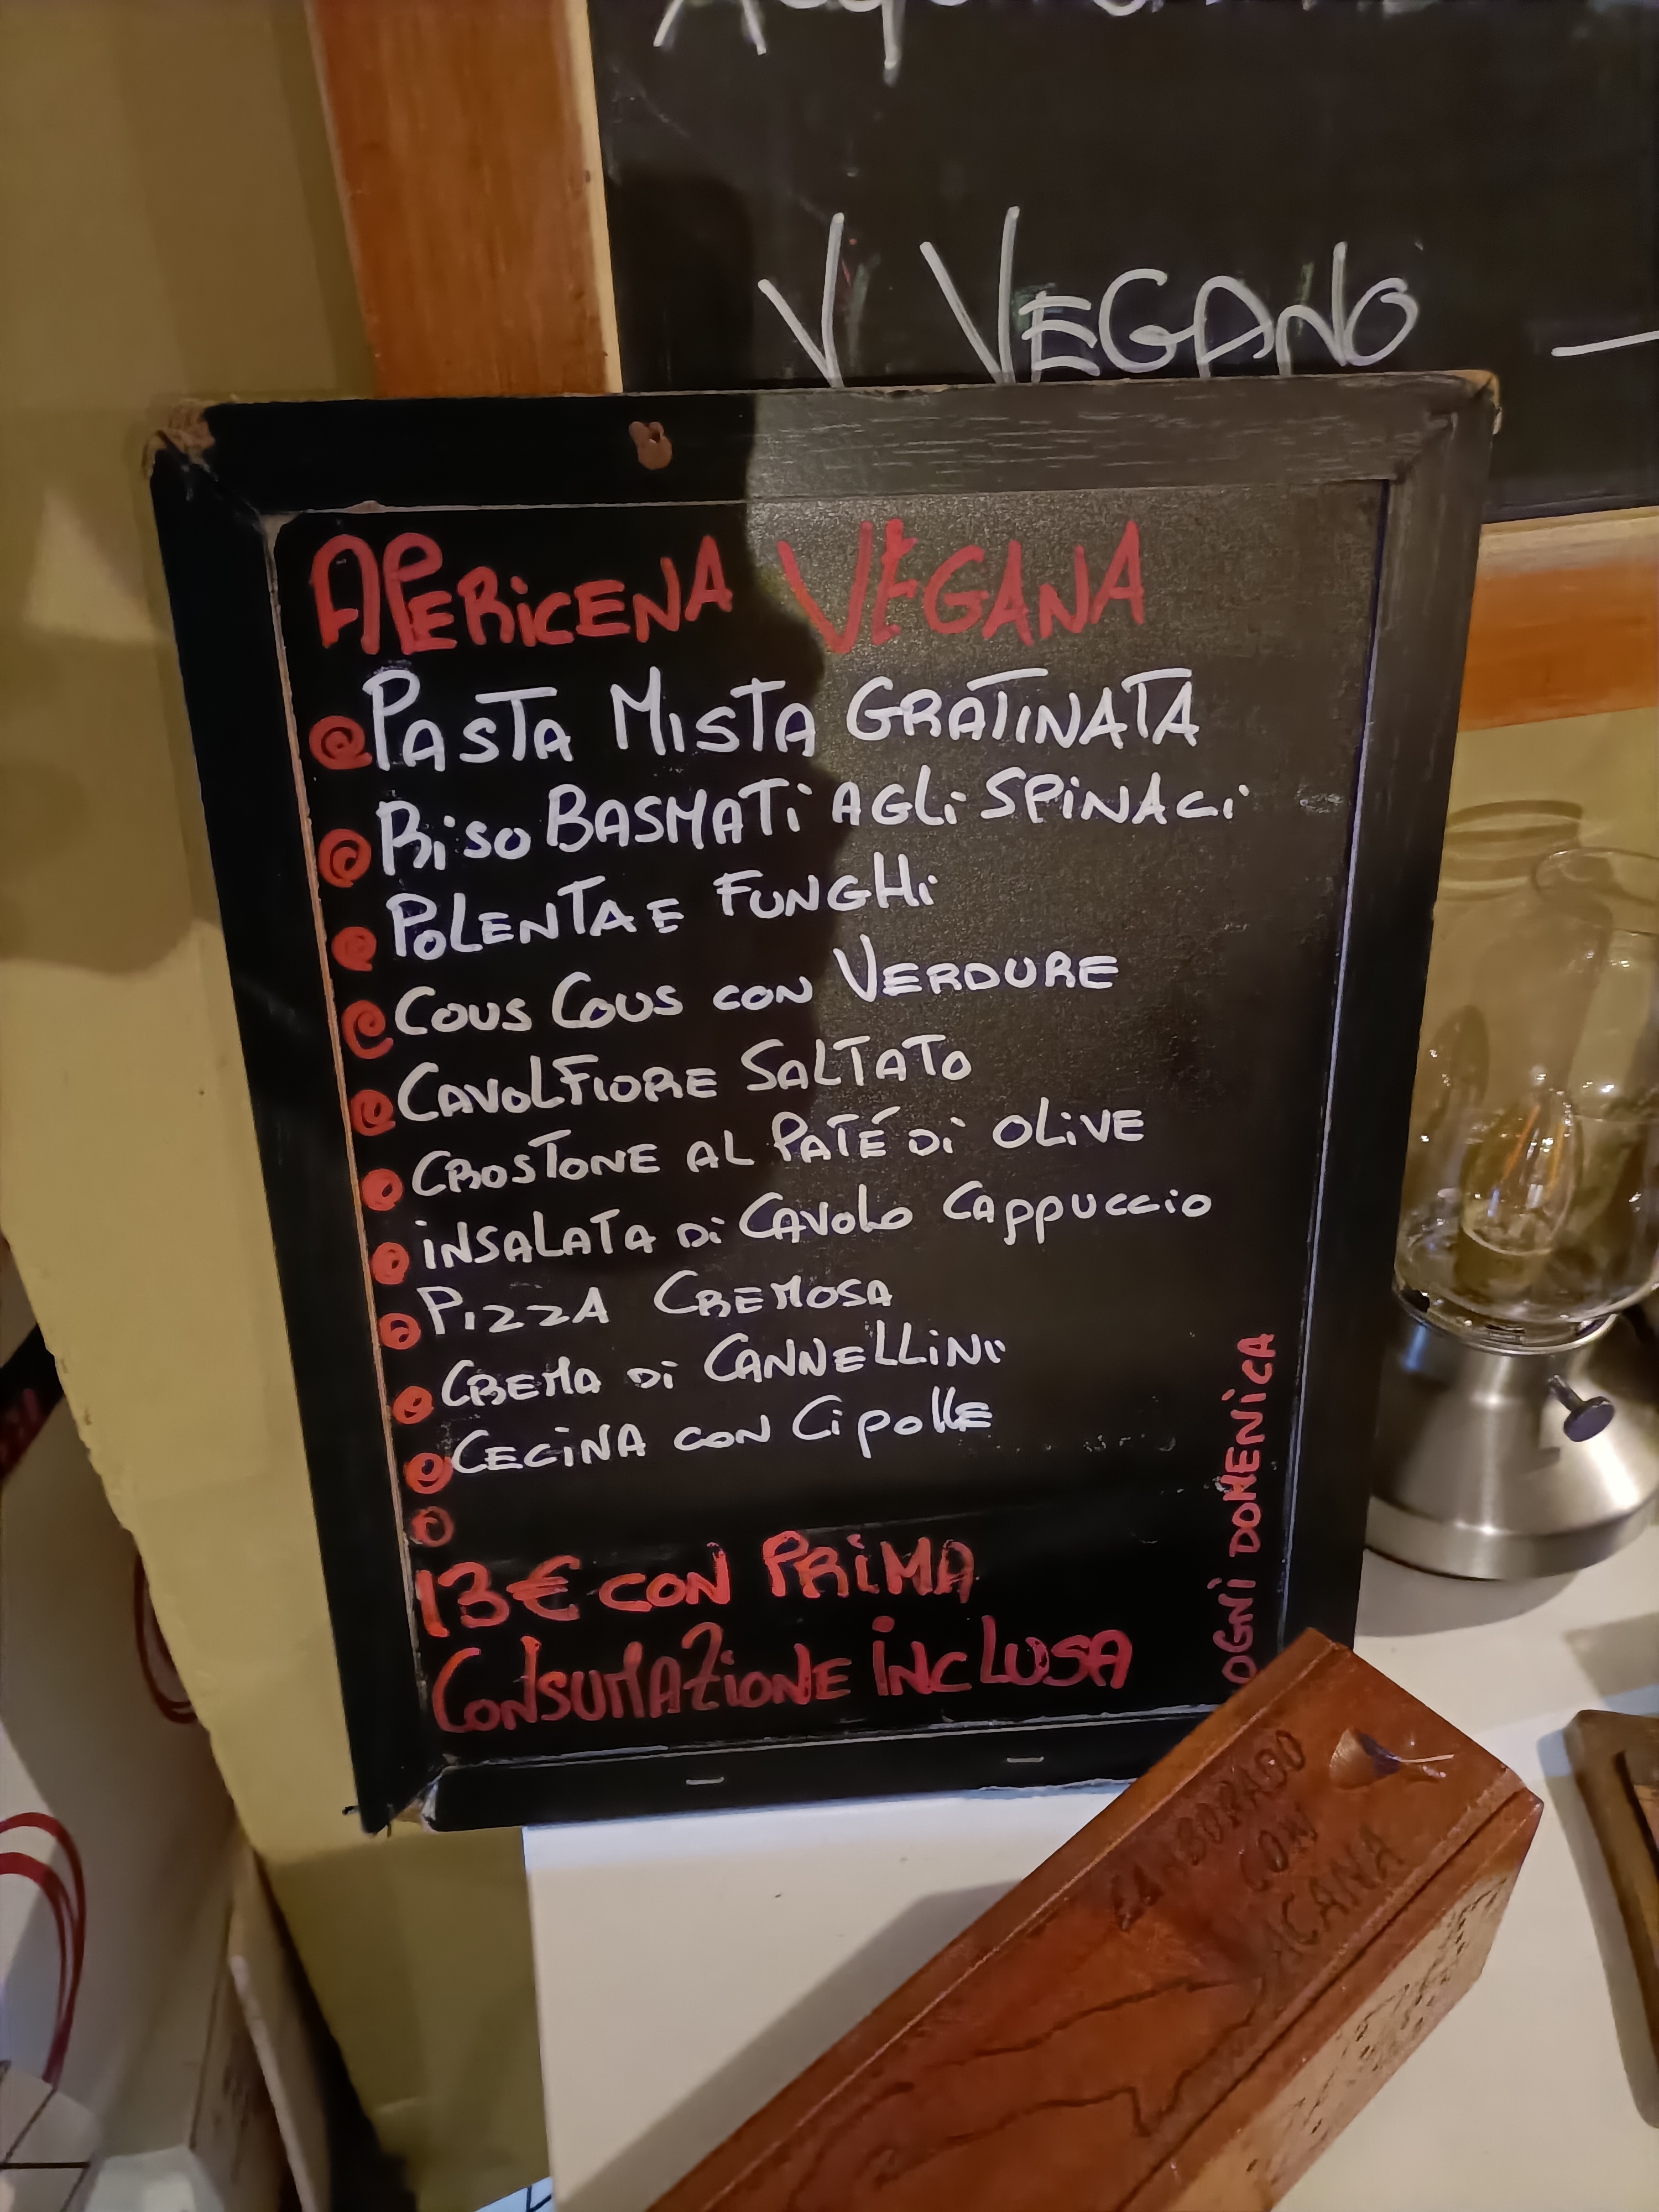 V VEGANO
APERICENA VEGANA
PASTA MISTA GRATINATA
RISO BASMATI AGLI SPINACI
POLENTA E FUNGHI
COUS COUS CON VERDURE
CAVOLFIORE SALTATO
CROSTONE AL PATÉ DI OLIVE
INSALATA DI CAVOLO CAPPUCCIO
PIZZA CREMOSA
CREMA DI CANNELLINI
CECINA CON CIPOLLE
13€ CON PRIMA
CONSUMAZIONE INCLUSA
OGNI DOMENICA
CON